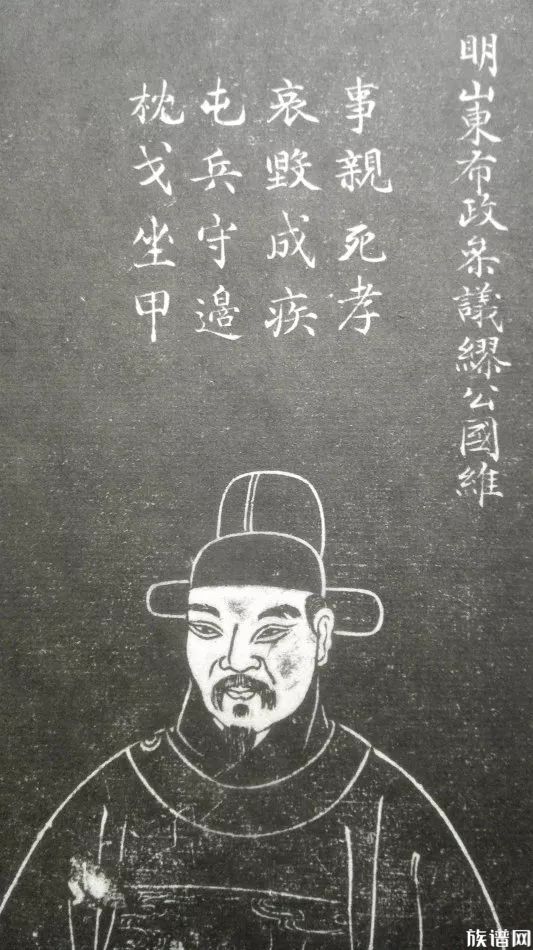 明山東布政叅議繆公國維
事親死孝
哀毀成疾
屯兵守邊
枕戈坐甲
族谱网